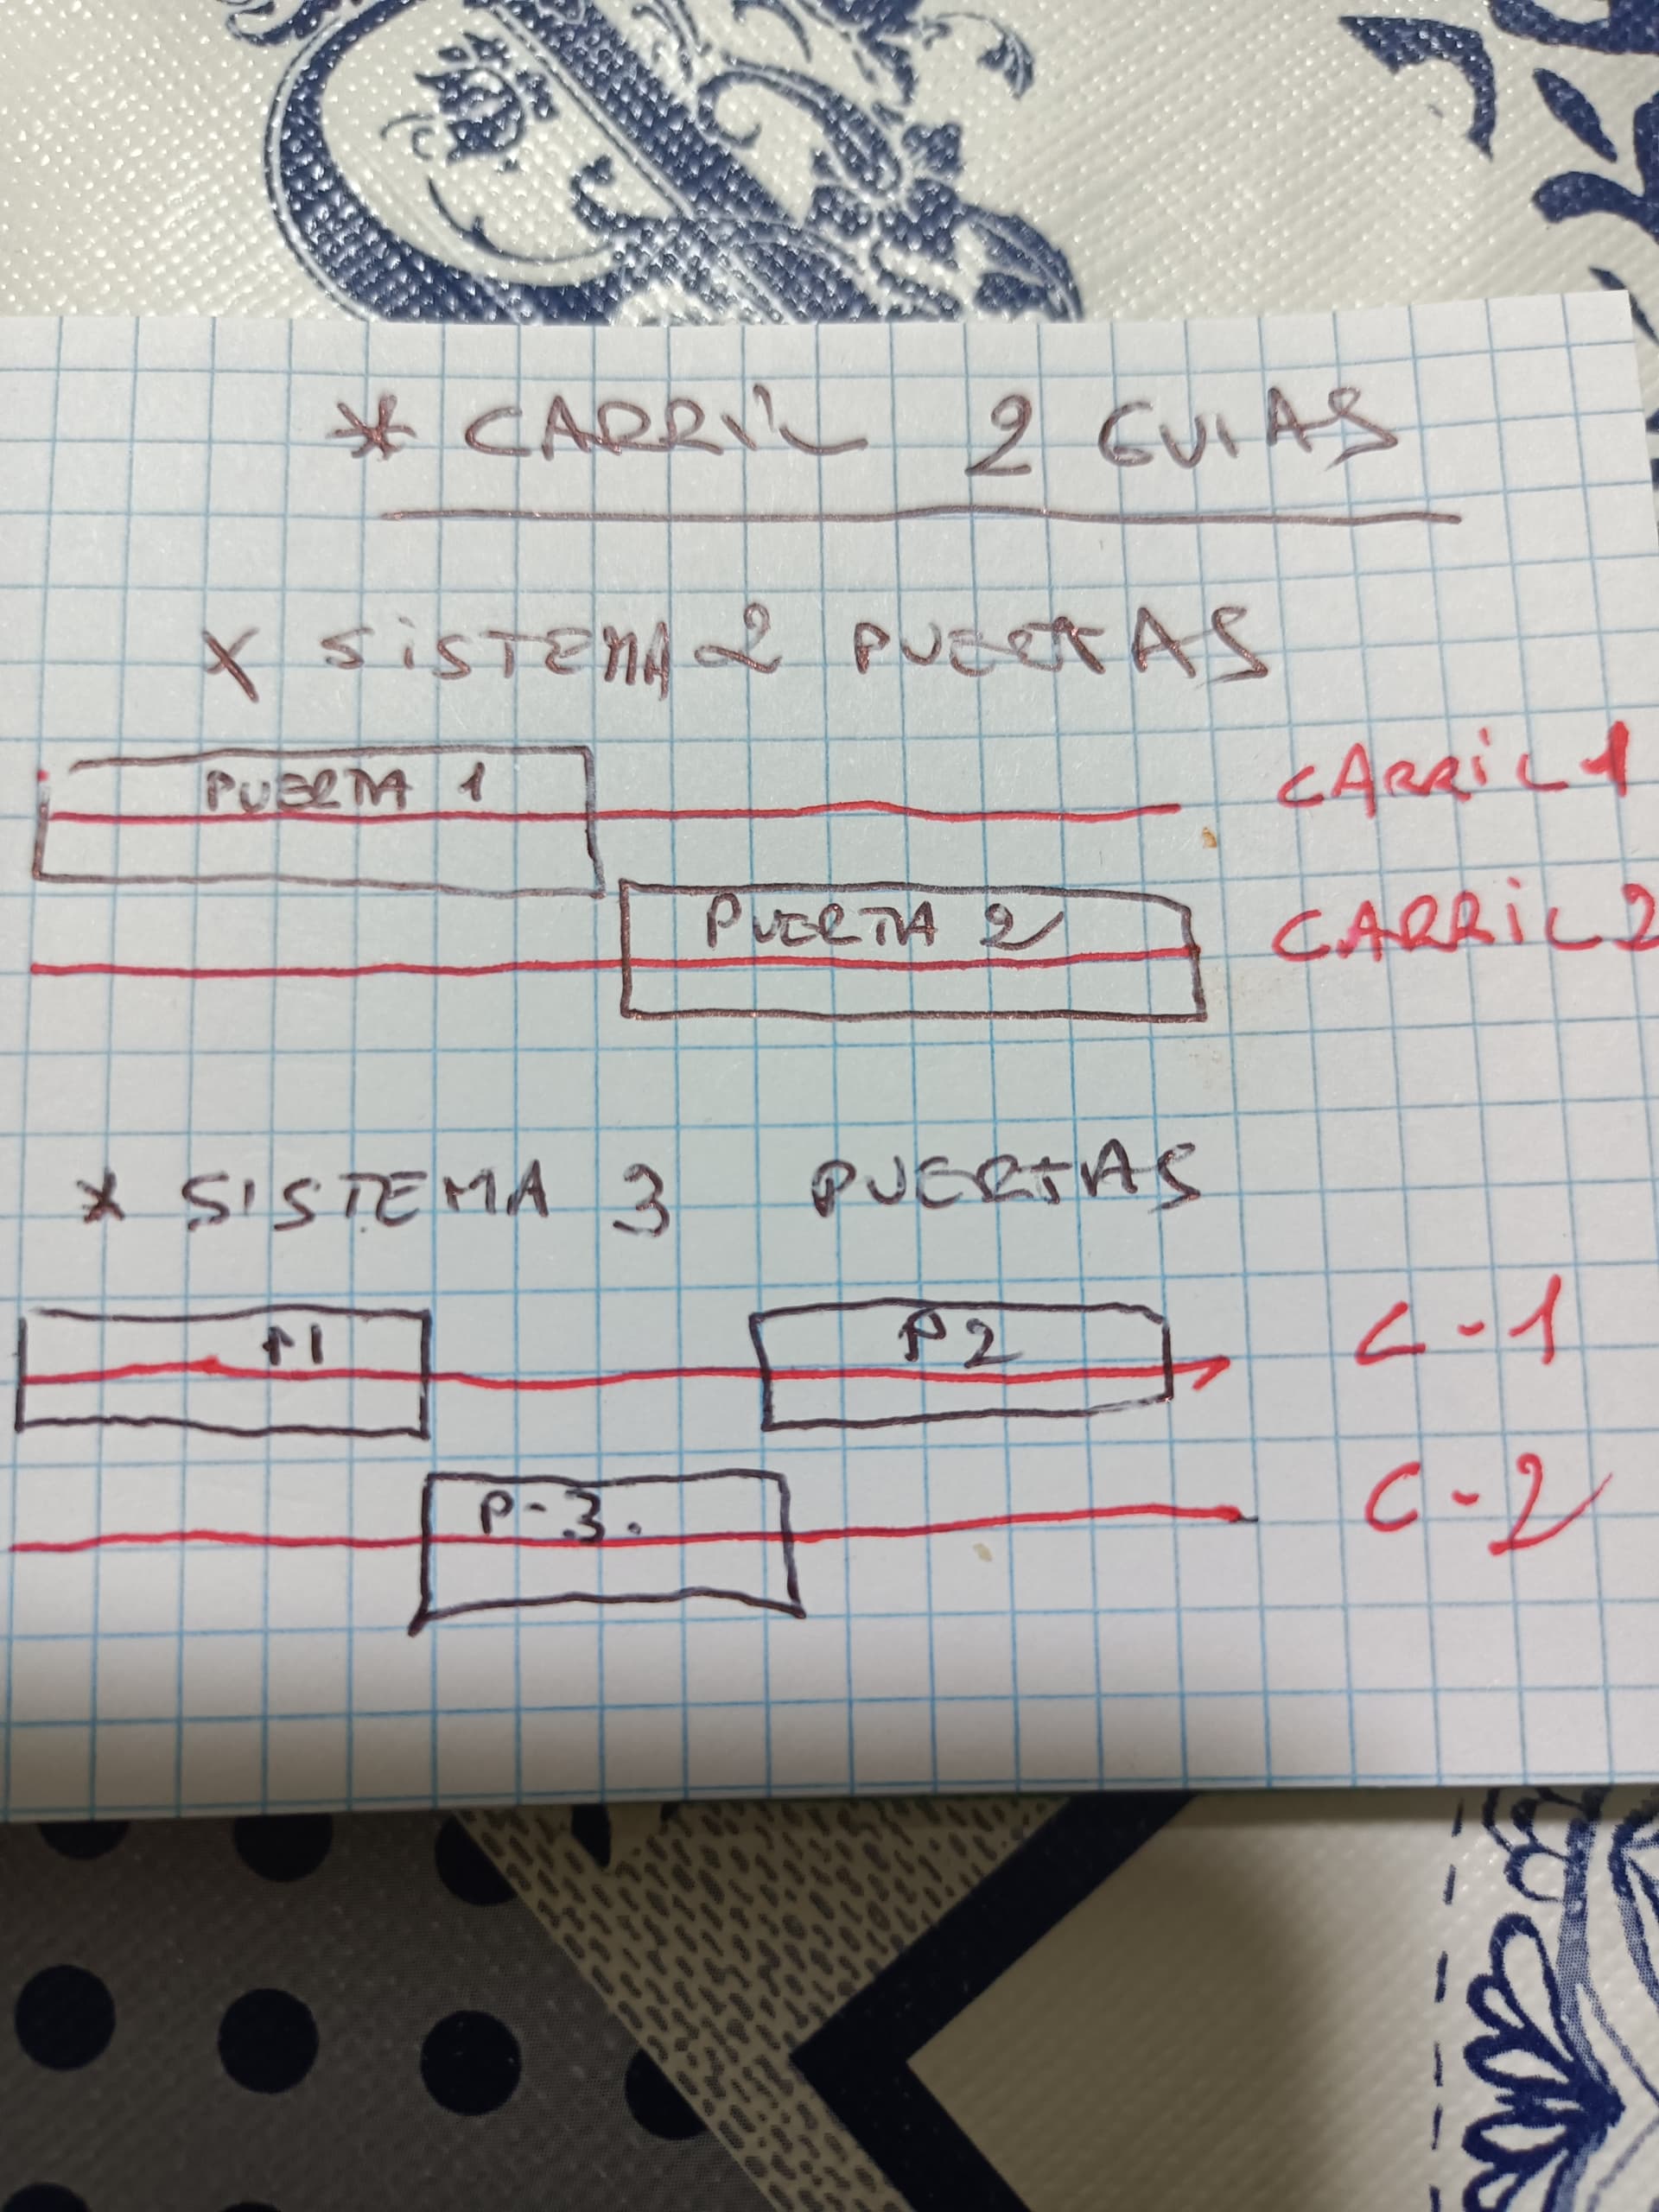 * CARRIL 2 GUIAS
x SISTEMA 2 PUERTAS
PUERTA 1 CARRIL 1
PUERTA 2 CARRIL 2
* SISTEMA 3 PUERTAS
P1 P2 C-1
P-3. C-2